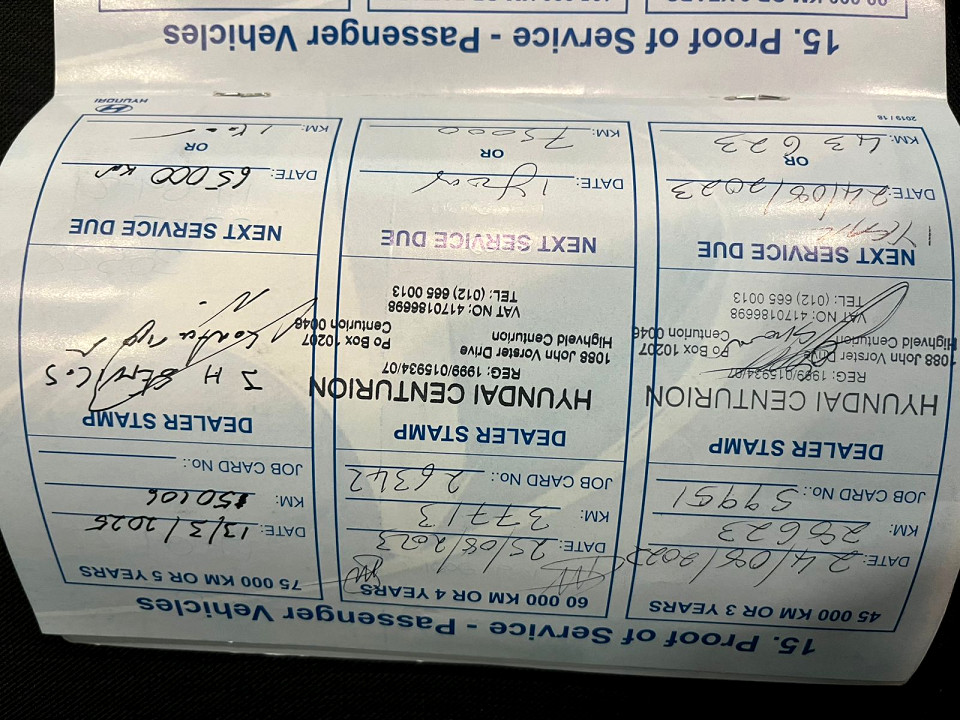 15. Proof of Service - Passenger Vehicles
45 000 KM OR 3 YEARS
DATE: 24/08/2022
KM: 28623
JOB CARD No.: 59951
DEALER STAMP
HYUNDAI CENTURION
REG: 1999/015934/07
1088 John Vorster Drive
Highveld Centurion
Po Box 10207
Centurion 0046
VAT NO: 4170186698
TEL: (012) 665 0013
NEXT SERVICE DUE
DATE: 24/08/2023
OR
KM: 43623
2019 / 18
60 000 KM OR 4 YEARS
DATE: 25/08/2023
KM: 37713
JOB CARD No.: 26342
DEALER STAMP
HYUNDAI CENTURION
REG: 1999/015934/07
1088 John Vorster Drive
Highveld Centurion
Po Box 10207
Centurion 0046
VAT NO: 4170186698
TEL: (012) 665 0013
NEXT SERVICE DUE
DATE: 1 year
OR
KM: 75000
75 000 KM OR 5 YEARS
DATE: 13/3/2025
KM: 50106
JOB CARD No.:
DEALER STAMP
NEXT SERVICE DUE
DATE: 65000 km
OR
KM: 1 year
HYUNDAI
15. Proof of Service - Passenger Vehicles